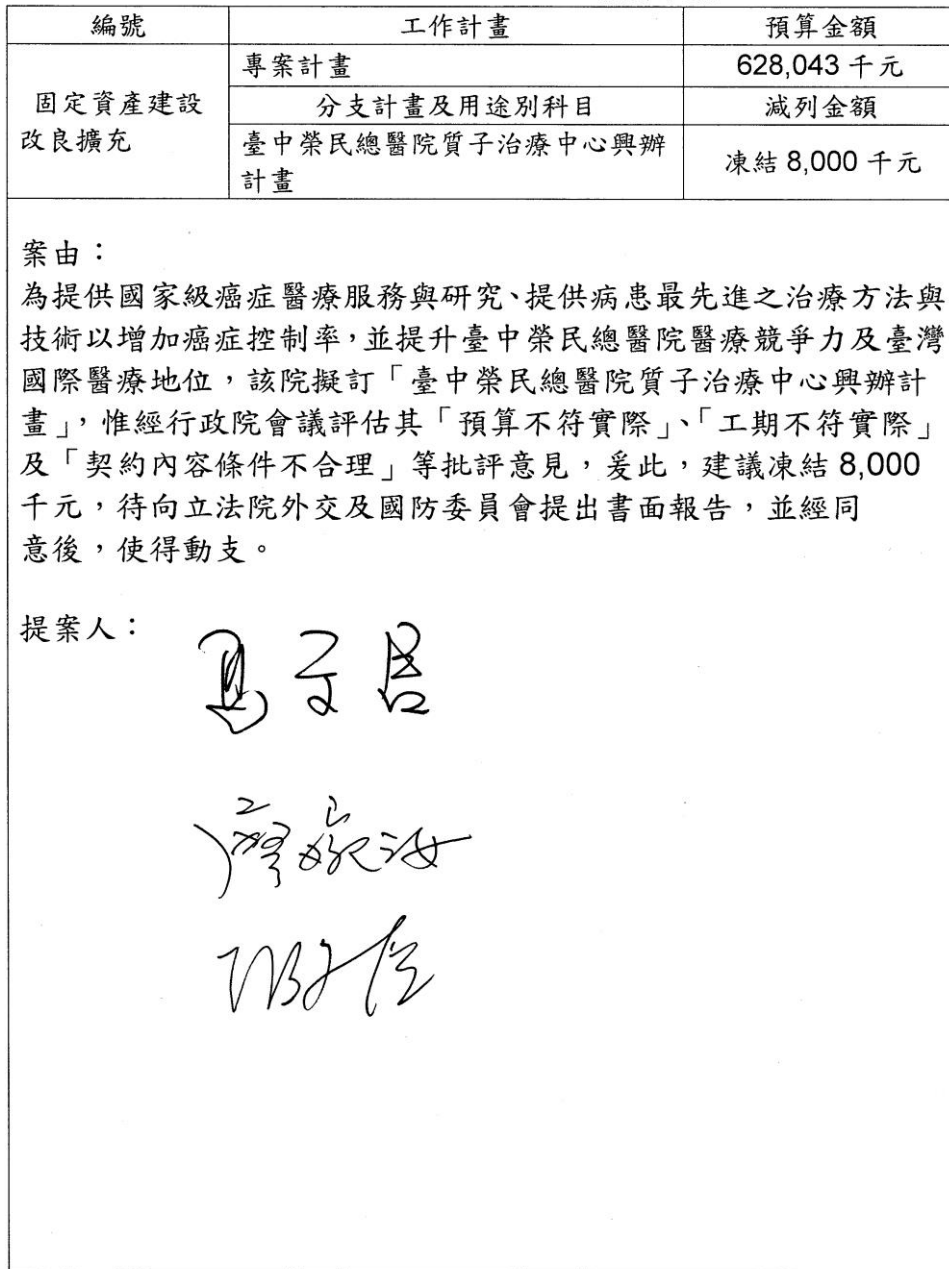 編號 工作計畫 預算金額
固定資產建設改良擴充 專案計畫 628,043 千元
分支計畫及用途別科目 減列金額
臺中榮民總醫院質子治療中心興辦計畫 凍結 8,000 千元
案由：
為提供國家級癌症醫療服務與研究、提供病患最先進之治療方法與
技術以增加癌症控制率，並提升臺中榮民總醫院醫療競爭力及臺灣
國際醫療地位，該院擬訂「臺中榮民總醫院質子治療中心興辦計
畫」，惟經行政院會議評估其「預算不符實際」、「工期不符實際」
及「契約內容條件不合理」等批評意見，爰此，建議凍結 8,000
千元，待向立法院外交及國防委員會提出書面報告，並經同
意後，使得動支。
提案人：
馬文君